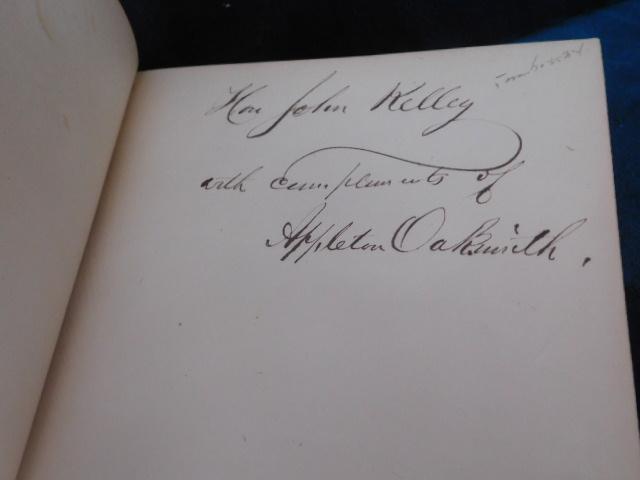 Hon John Kelley
with compliments of
Appleton Oaksmith.